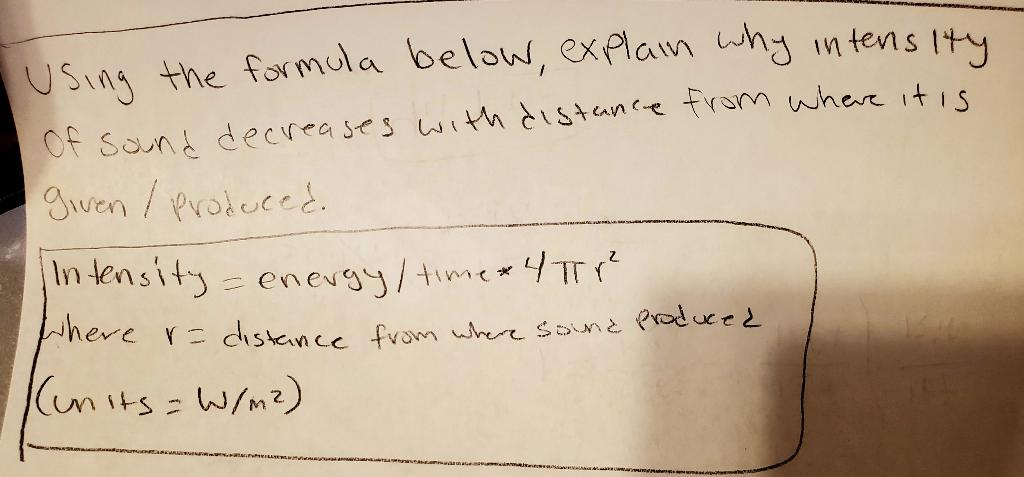 Using the formula below, explain why intensity
of sound decreases with distance from where it is
given / produced.
Intensity = energy / time * 4 π r²
where r = distance from where sound produced
(units = W/m²)